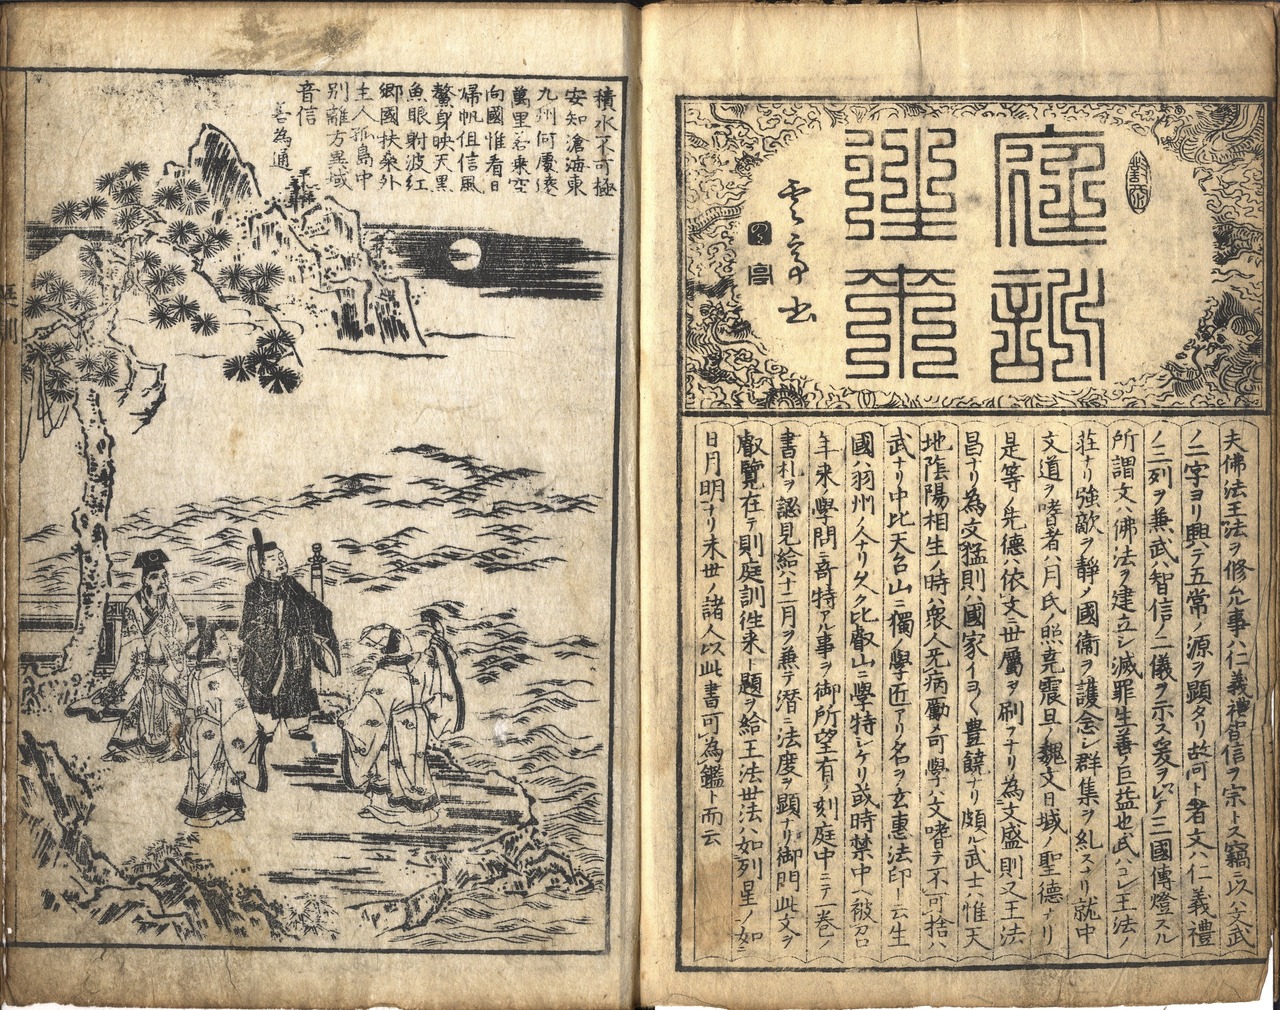 庭訓
往来
雲亭書
夫佛法王法ヲ修ル事ハ仁義禮智信ヲ宗トス竊ニ以ハ文武
ノ二字ヨリ興ハテ五常ノ源ヲ顕タリ故何ト者文ハ仁義禮
ノ三列ヲ兼武ハ智信ノ二儀ヲ示ス爰ヲ以テ三國傳燈スル
所謂文ハ佛法ヲ建立シ滅罪生善ノ巨益也武ハコレ王法ノ
荘ナリ強敵ヲ靜メ國衞ヲ護念シ群集ヲ糺スナリ就中
文道ヲ嗜者ハ月氏ノ照堯震旦ノ魏文日域ノ聖德ナリ
是等ノ先德ハ依文ニ世属ヲ刷フナリ為文盛則又王法
昌ナリ為文猛則ハ國家イヨ〱豊饒ナリ頗ル武士ハ惟天
地陰陽相生ノ時ハ衆人無病勵ノ可學ハ文嗜テ不可捨ハ
武ナリ中比天台山ニ獨ノ學匠アリ名ヲ玄惠法印ト云生
國ハ羽州ノ人ナリ久ク比叡山ニ學特シケリ或時禁中ヘ被召
年来學問ニ奇特アル事ヲ御所望有ノ刻庭中ニテ一巻ノ
書札ヲ認見給ハ十二月ヲ兼テ潜ニ法度ヲ顕ナリ御門此文ヲ
叡覽在テ則庭訓徃来ト題ヲ給王法世法ハ如列星ノ如
日月明ナリ末世ノ諸人以此書可為鑑ト而云
積水不可極
安知滄海東
九州何處遠
萬里若乗空
向國惟看日
帰帆但信風
鰲身映天黒
魚眼射波紅
郷國扶桑外
主人孤島中
別離方異域
音信
若為通
庭訓